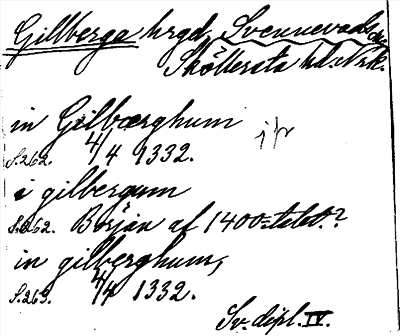 Gilberga hrgd, Svennevads sn
Sköllersta hd. Nrk.
in Gilbærghum
S.262. 4/4 1332.
i gilbergum
S.262. Början af 1400-talet.?
in gilberghum,
S.263. 4/4 1332.
Sv. dipl. IV.